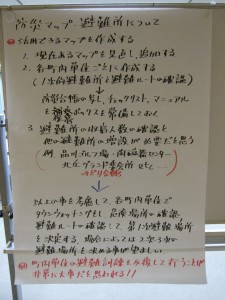 防災マップ 避難所について
活用できるマップを作成する
1. 現在あるマップを見直し、追加する
2. 各町内単位ごとに作成する
(1次的避難所と避難ルートの確認)
防災台帳の写し、チェックリスト、マニュアル
を ボックスを常備しておく
3. 避難所の収容人数の確認と
他の避難所の増設が必要だと思う
(例 品川ゴルフ場・
北広グランド
以上の事を考慮して、各町内単位で
タウンウォッチングをし、危険場所の確認、
避難ルートの確認して、第1次避難場所
を決定する、場合によっては2次3次の
避難場所を決める事が望ましい
町内単位の避難訓練を反復して行うことが
非常に大事だと思われる!!